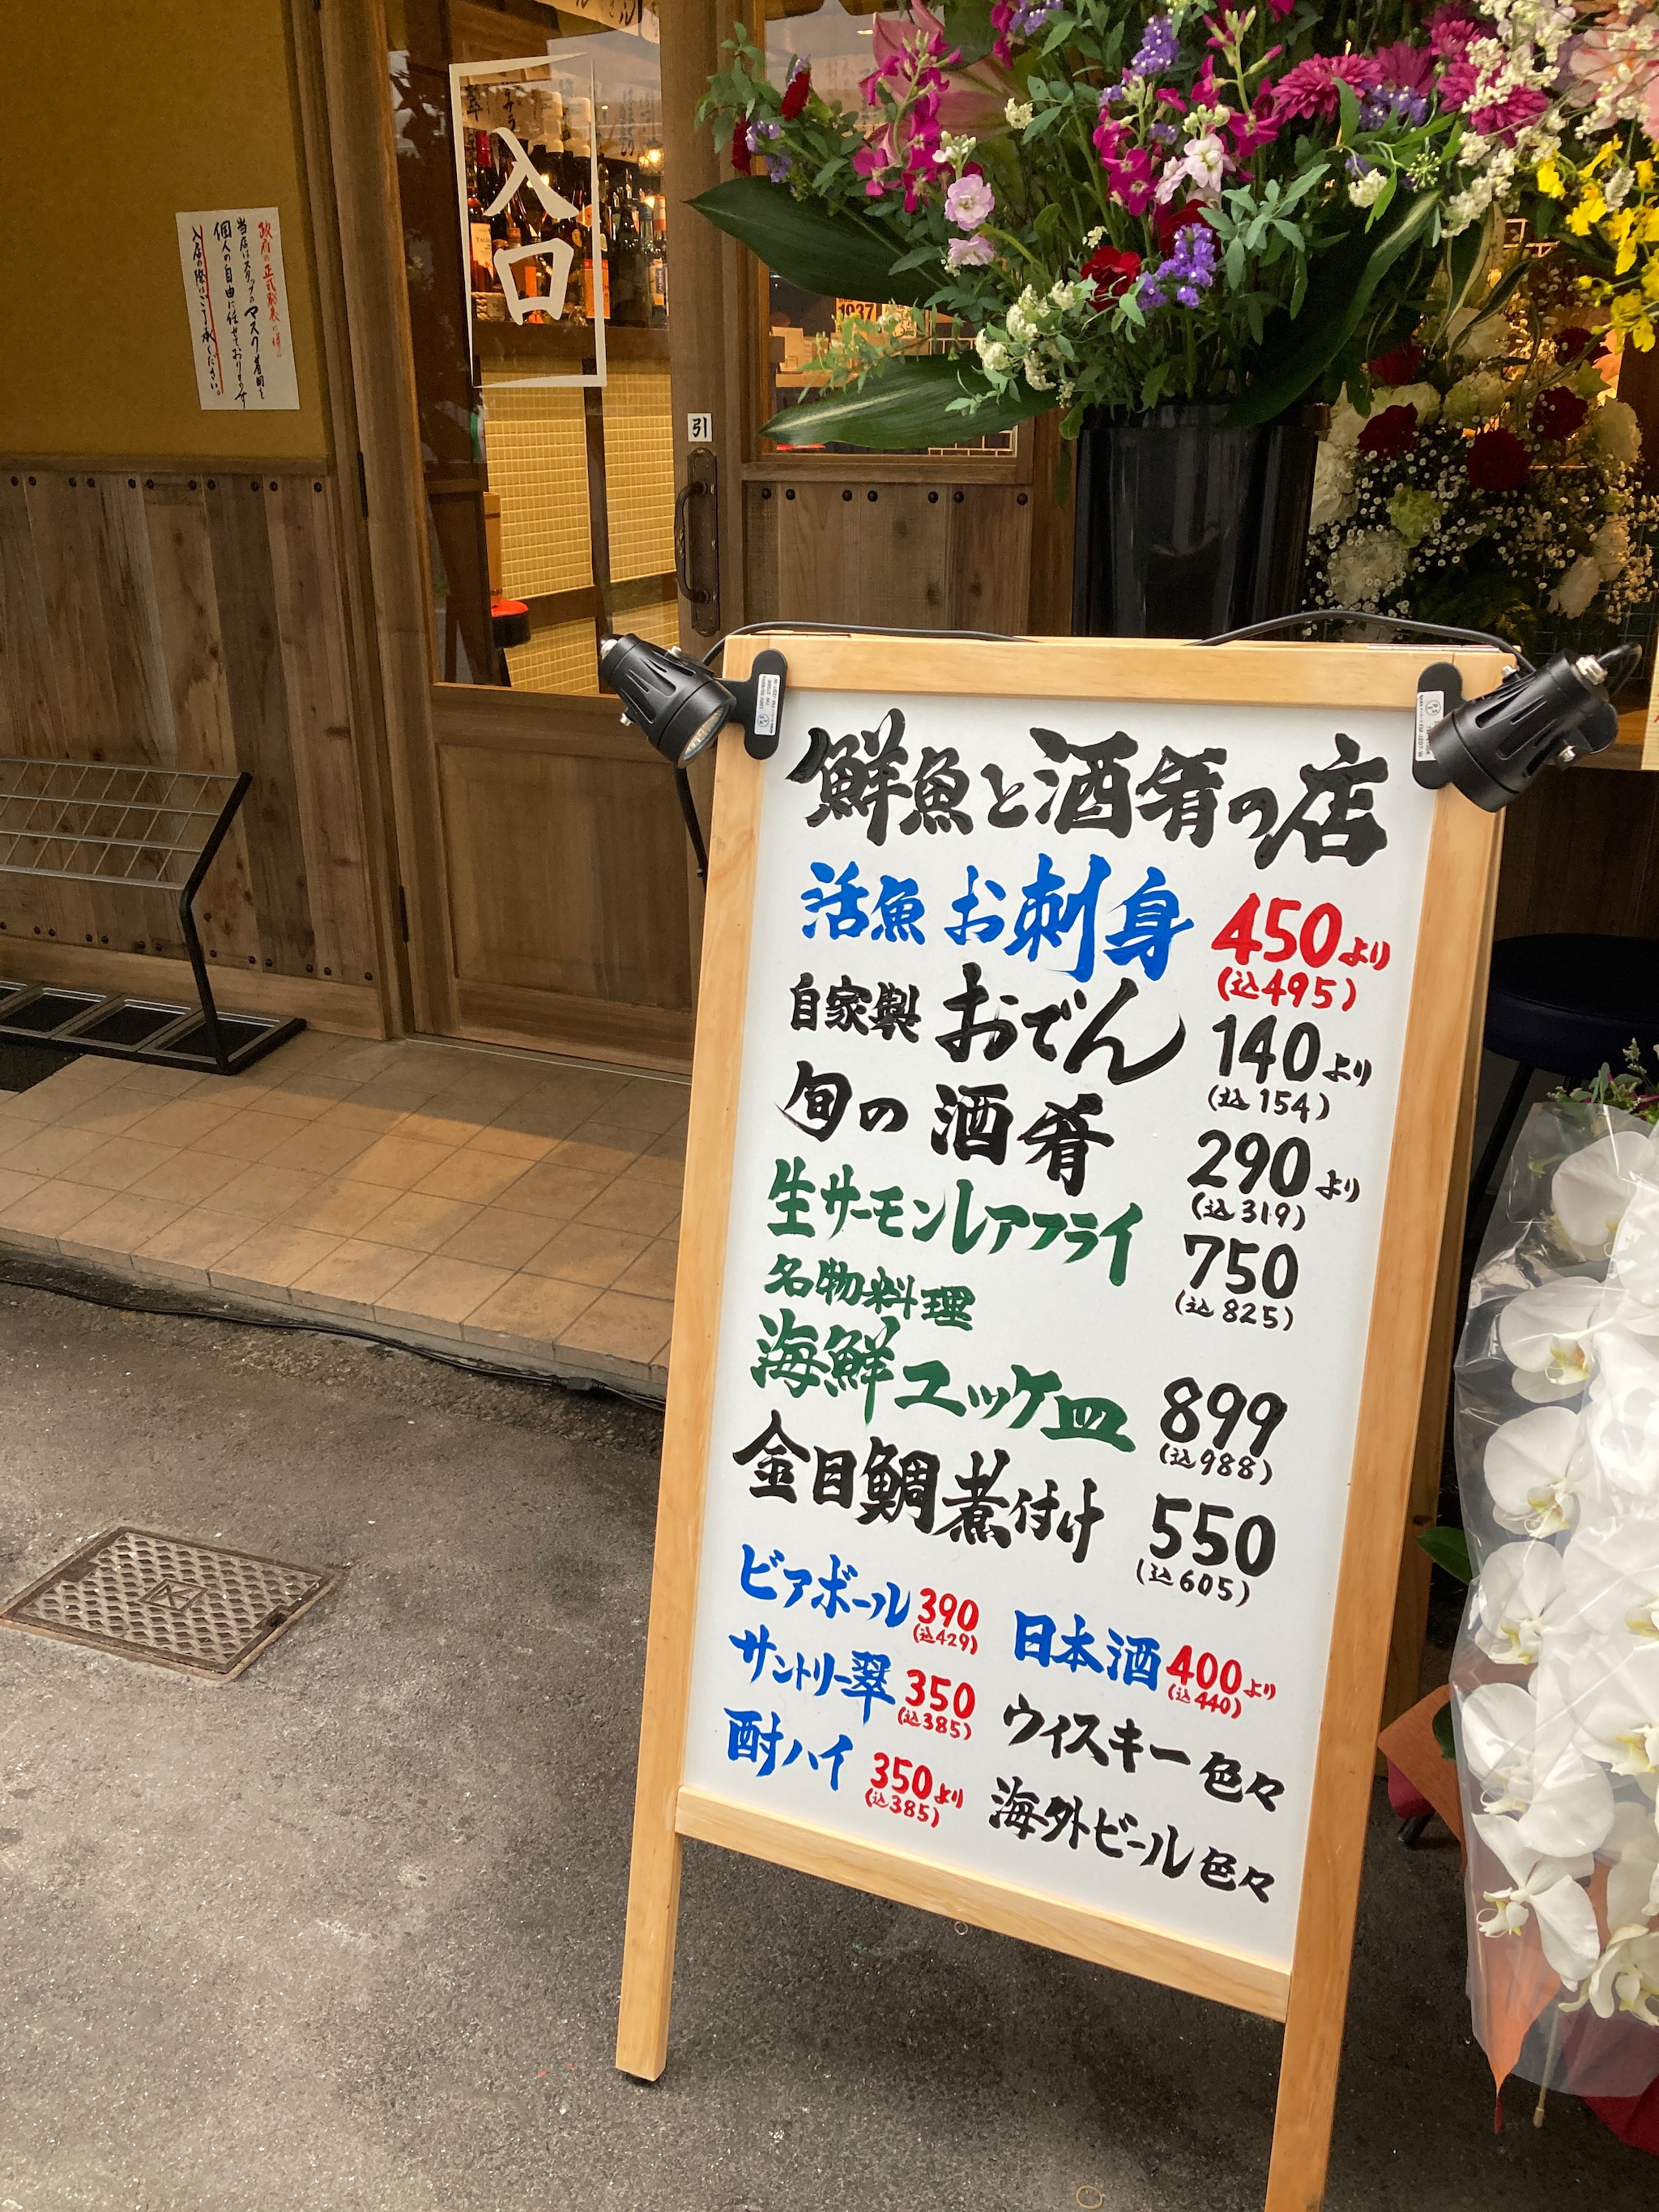 入口
政府の正式発表に伴い
当店はスタッフのマスク着用を
個人の自由に任せております
入店の際はご了承ください。
引
1937
鮮魚と酒肴の店
活魚 お刺身 450より
(込495)
自家製 おでん 140より
(込154)
旬の酒肴 290より
(込319)
生サーモンレアフライ 750
(込825)
名物料理
海鮮ユッケ皿 899
(込988)
金目鯛煮付け 550
(込605)
ビアボール 390
(込429)
サントリー翠 350
(込385)
酎ハイ 350より
(込385)
日本酒 400より
(込440)
ウィスキー色々
海外ビール色々